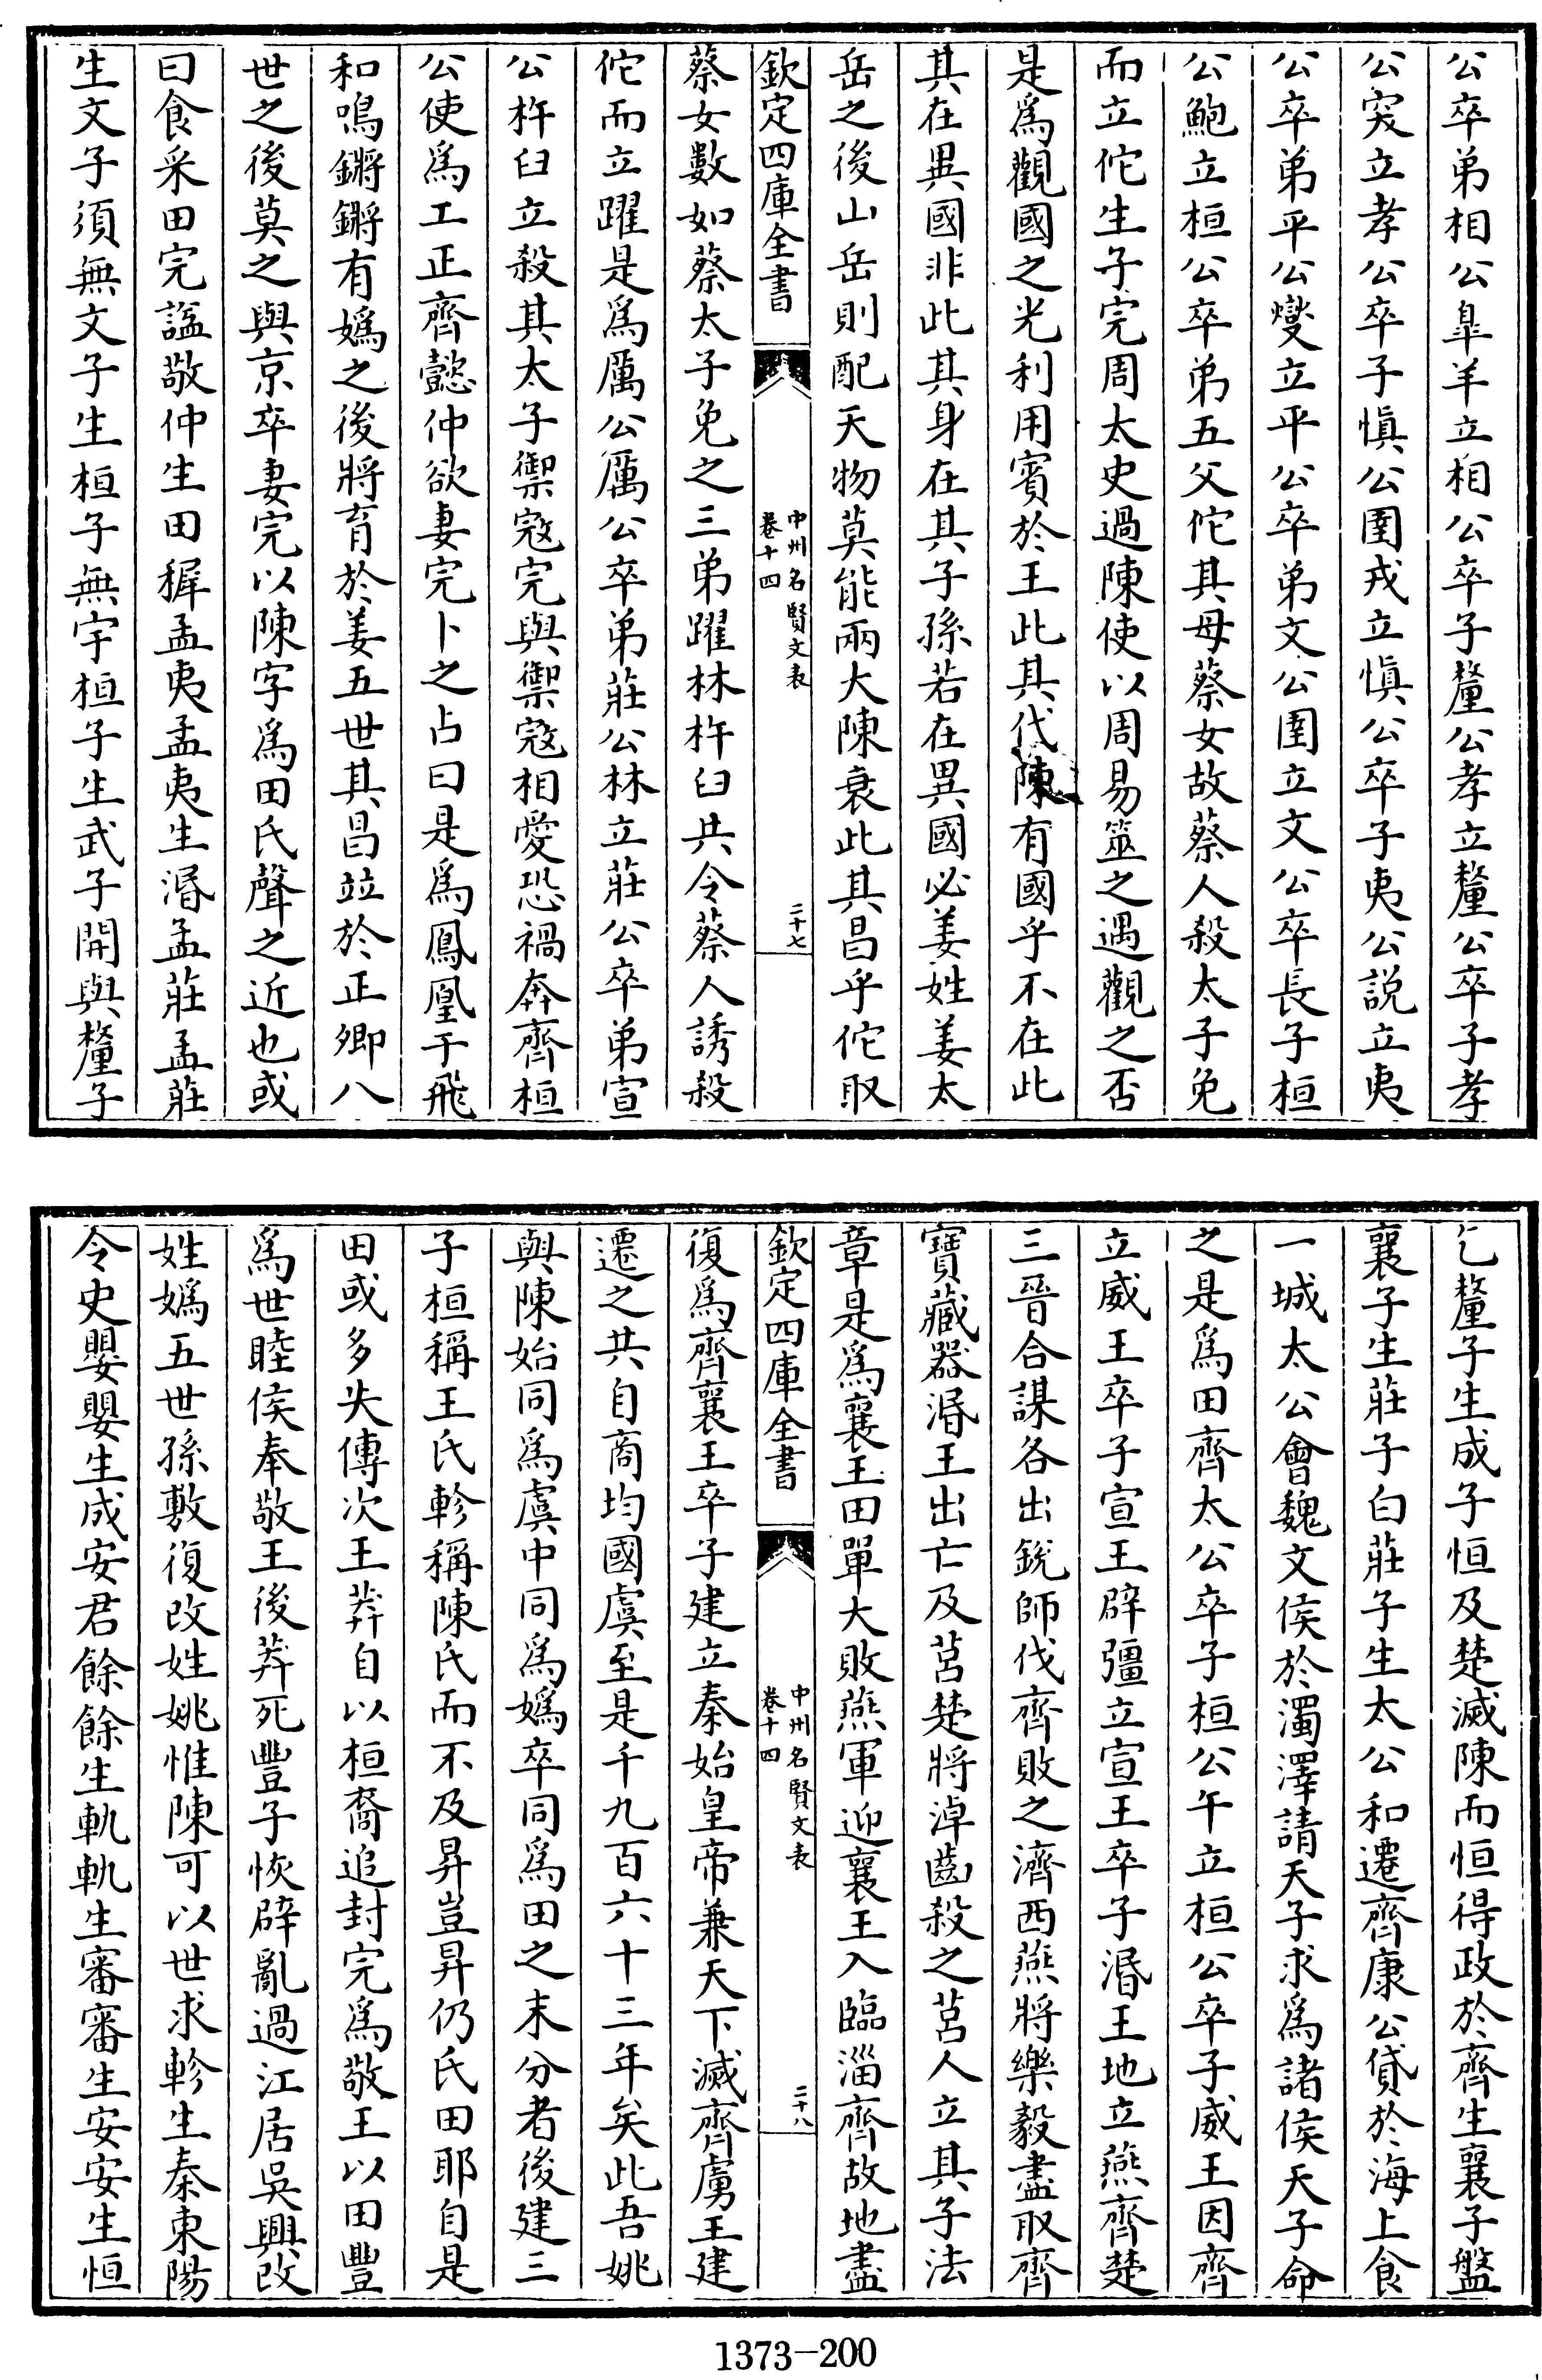 公卒弟相公臯羊立相公卒子釐公孝立釐公卒子孝
公突立孝公卒子慎公圉戎立慎公卒子夷公説立夷
公卒弟平公燮立平公卒弟文公圉立文公卒長子桓
公鮑立桓公卒弟五父佗其母蔡女故蔡人殺太子免
而立佗生子完周太史過陳使以周易筮之遇觀之否
是爲觀國之光利用賓於王此其代陳有國乎不在此
其在異國非此其身在其子孫若在異國必姜姓姜太
岳之後山岳則配天物莫能兩大陳衰此其昌乎佗取
欽定四庫全書
中州名賢文表
卷十四
二十七
蔡女數如蔡太子免之三弟躍林杵臼共令蔡人誘殺
佗而立躍是爲厲公厲公卒弟莊公林立莊公卒弟宣
公杵臼立殺其太子禦寇完與禦寇相愛恐禍奔齊桓
公使爲工正齊懿仲欲妻完卜之占曰是爲鳳凰于飛
和鳴鏘鏘有嬀之後將育於姜五世其昌竝於正卿八
世之後莫之與京卒妻完以陳字爲田氏聲之近也或
曰食采田完諡敬仲生田穉孟夷孟夷生湣孟莊孟莊
生文子須無文子生桓子無宇桓子生武子開與釐子
乞釐子生成子恒及楚滅陳而恒得政於齊生襄子盤
襄子生莊子白莊子生太公和遷齊康公貸於海上食
一城太公會魏文侯於濁澤請天子求爲諸侯天子命
之是爲田齊太公卒子桓公午立桓公卒子威王因齊
立威王卒子宣王辟彊立宣王卒子湣王地立燕齊楚
三晉合謀各出鋭師伐齊敗之濟西燕將樂毅盡取齊
寶藏器湣王出亡及莒楚將淖齒殺之莒人立其子法
章是爲襄王田單大敗燕軍迎襄王入臨淄齊故地盡
欽定四庫全書
中州名賢文表
卷十四
二十八
復爲齊襄王卒子建立秦始皇帝兼天下滅齊虜王建
遷之共自商均國虞至是千九百六十三年矣此吾姚
與陳始同爲虞中同爲嬀卒同爲田之末分者後建三
子桓稱王氏軫稱陳氏而不及昇豈昇仍氏田耶自是
田或多失傳次王莽自以桓裔追封完爲敬王以田豐
爲世睦侯奉敬王後莽死豐子恢辟亂過江居吳興改
姓嬀五世孫敷復改姓姚惟陳可以世求軫生秦東陽
令史嬰嬰生成安君餘餘生軌軌生審審生安安生恒
1373—200